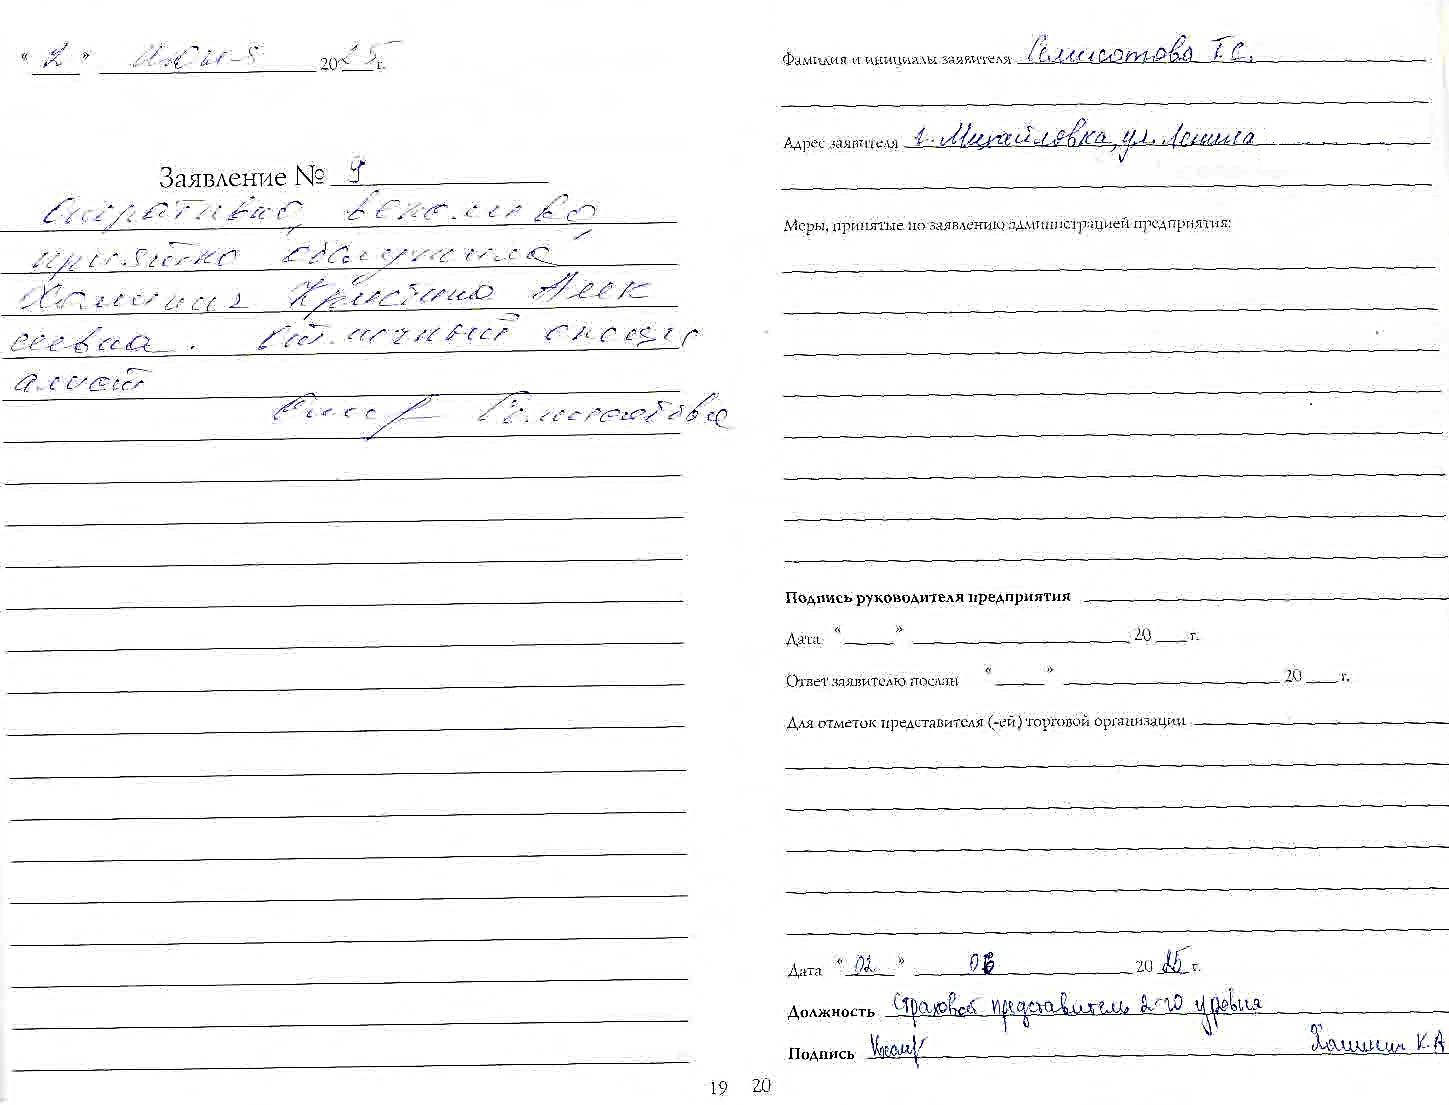 « 2 » июня 2025 г.
Заявление № 9
Оперативно, вежливо
приятно обслужила
Хашинин Кристина Алек
сеевна. Отличный специ
алист
Фамилия и инициалы заявителя Т.С.
Адрес заявителя г. Михайловка, ул. Ленина
Меры, принятые по заявлению администрацией предприятия:
Подпись руководителя предприятия
Дата « » 20 г.
Ответ заявителю послан « » 20 г.
Для отметок представителя (-ей) торговой организации
Дата « 02 » 06 20 25 г.
Должность Страховой представитель 2-го уровня
Подпись К.А
19 20